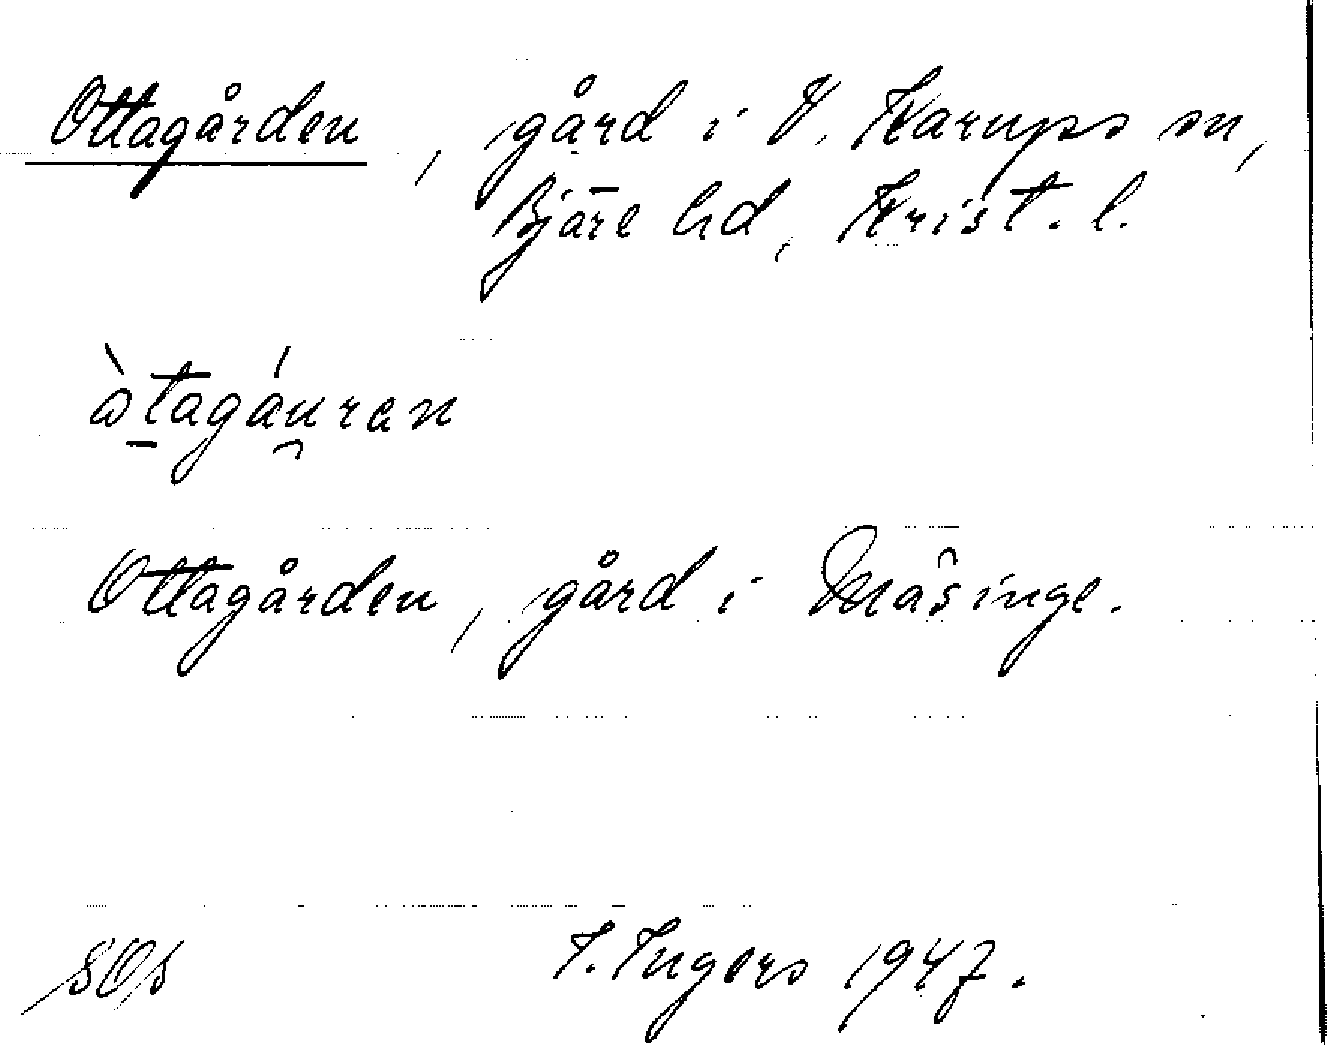 Ottagården, gård i V. Karups sn,
Bjäre hd, Krist. l.
àtagáuran
Ottagården, gård i Mäsinge.
SOS I. Ingers 1947.